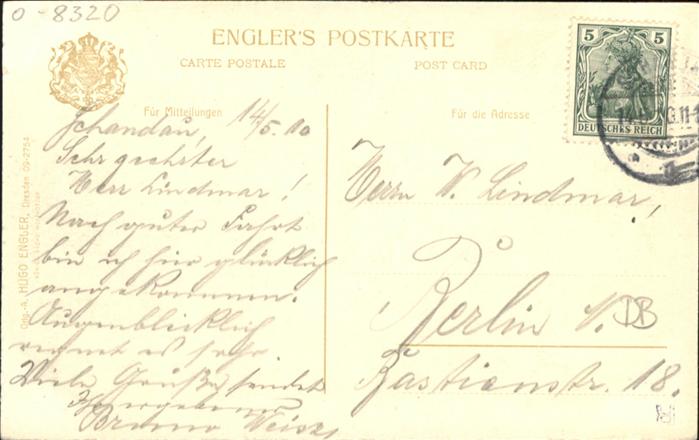 0-8320
ENGLER'S POSTKARTE
CARTE POSTALE POST CARD
5 5
DEUTSCHES REICH
Für Mitteilungen
Für die Adresse
Schandau, 14/5.10
Sehr geehrter
Herr Lindmar!
Nach guter Fahrt
bin ich hier glücklich
angekommen.
Augenblicklich
regnet es sehr
Viele Grüße sendet
Ihr ergebener
Bruno Weise
Herrn W. Lindmar!
Berlin N.
DB
Bastianstr. 18.
HUGO ENGLER, Dresden 09-2754